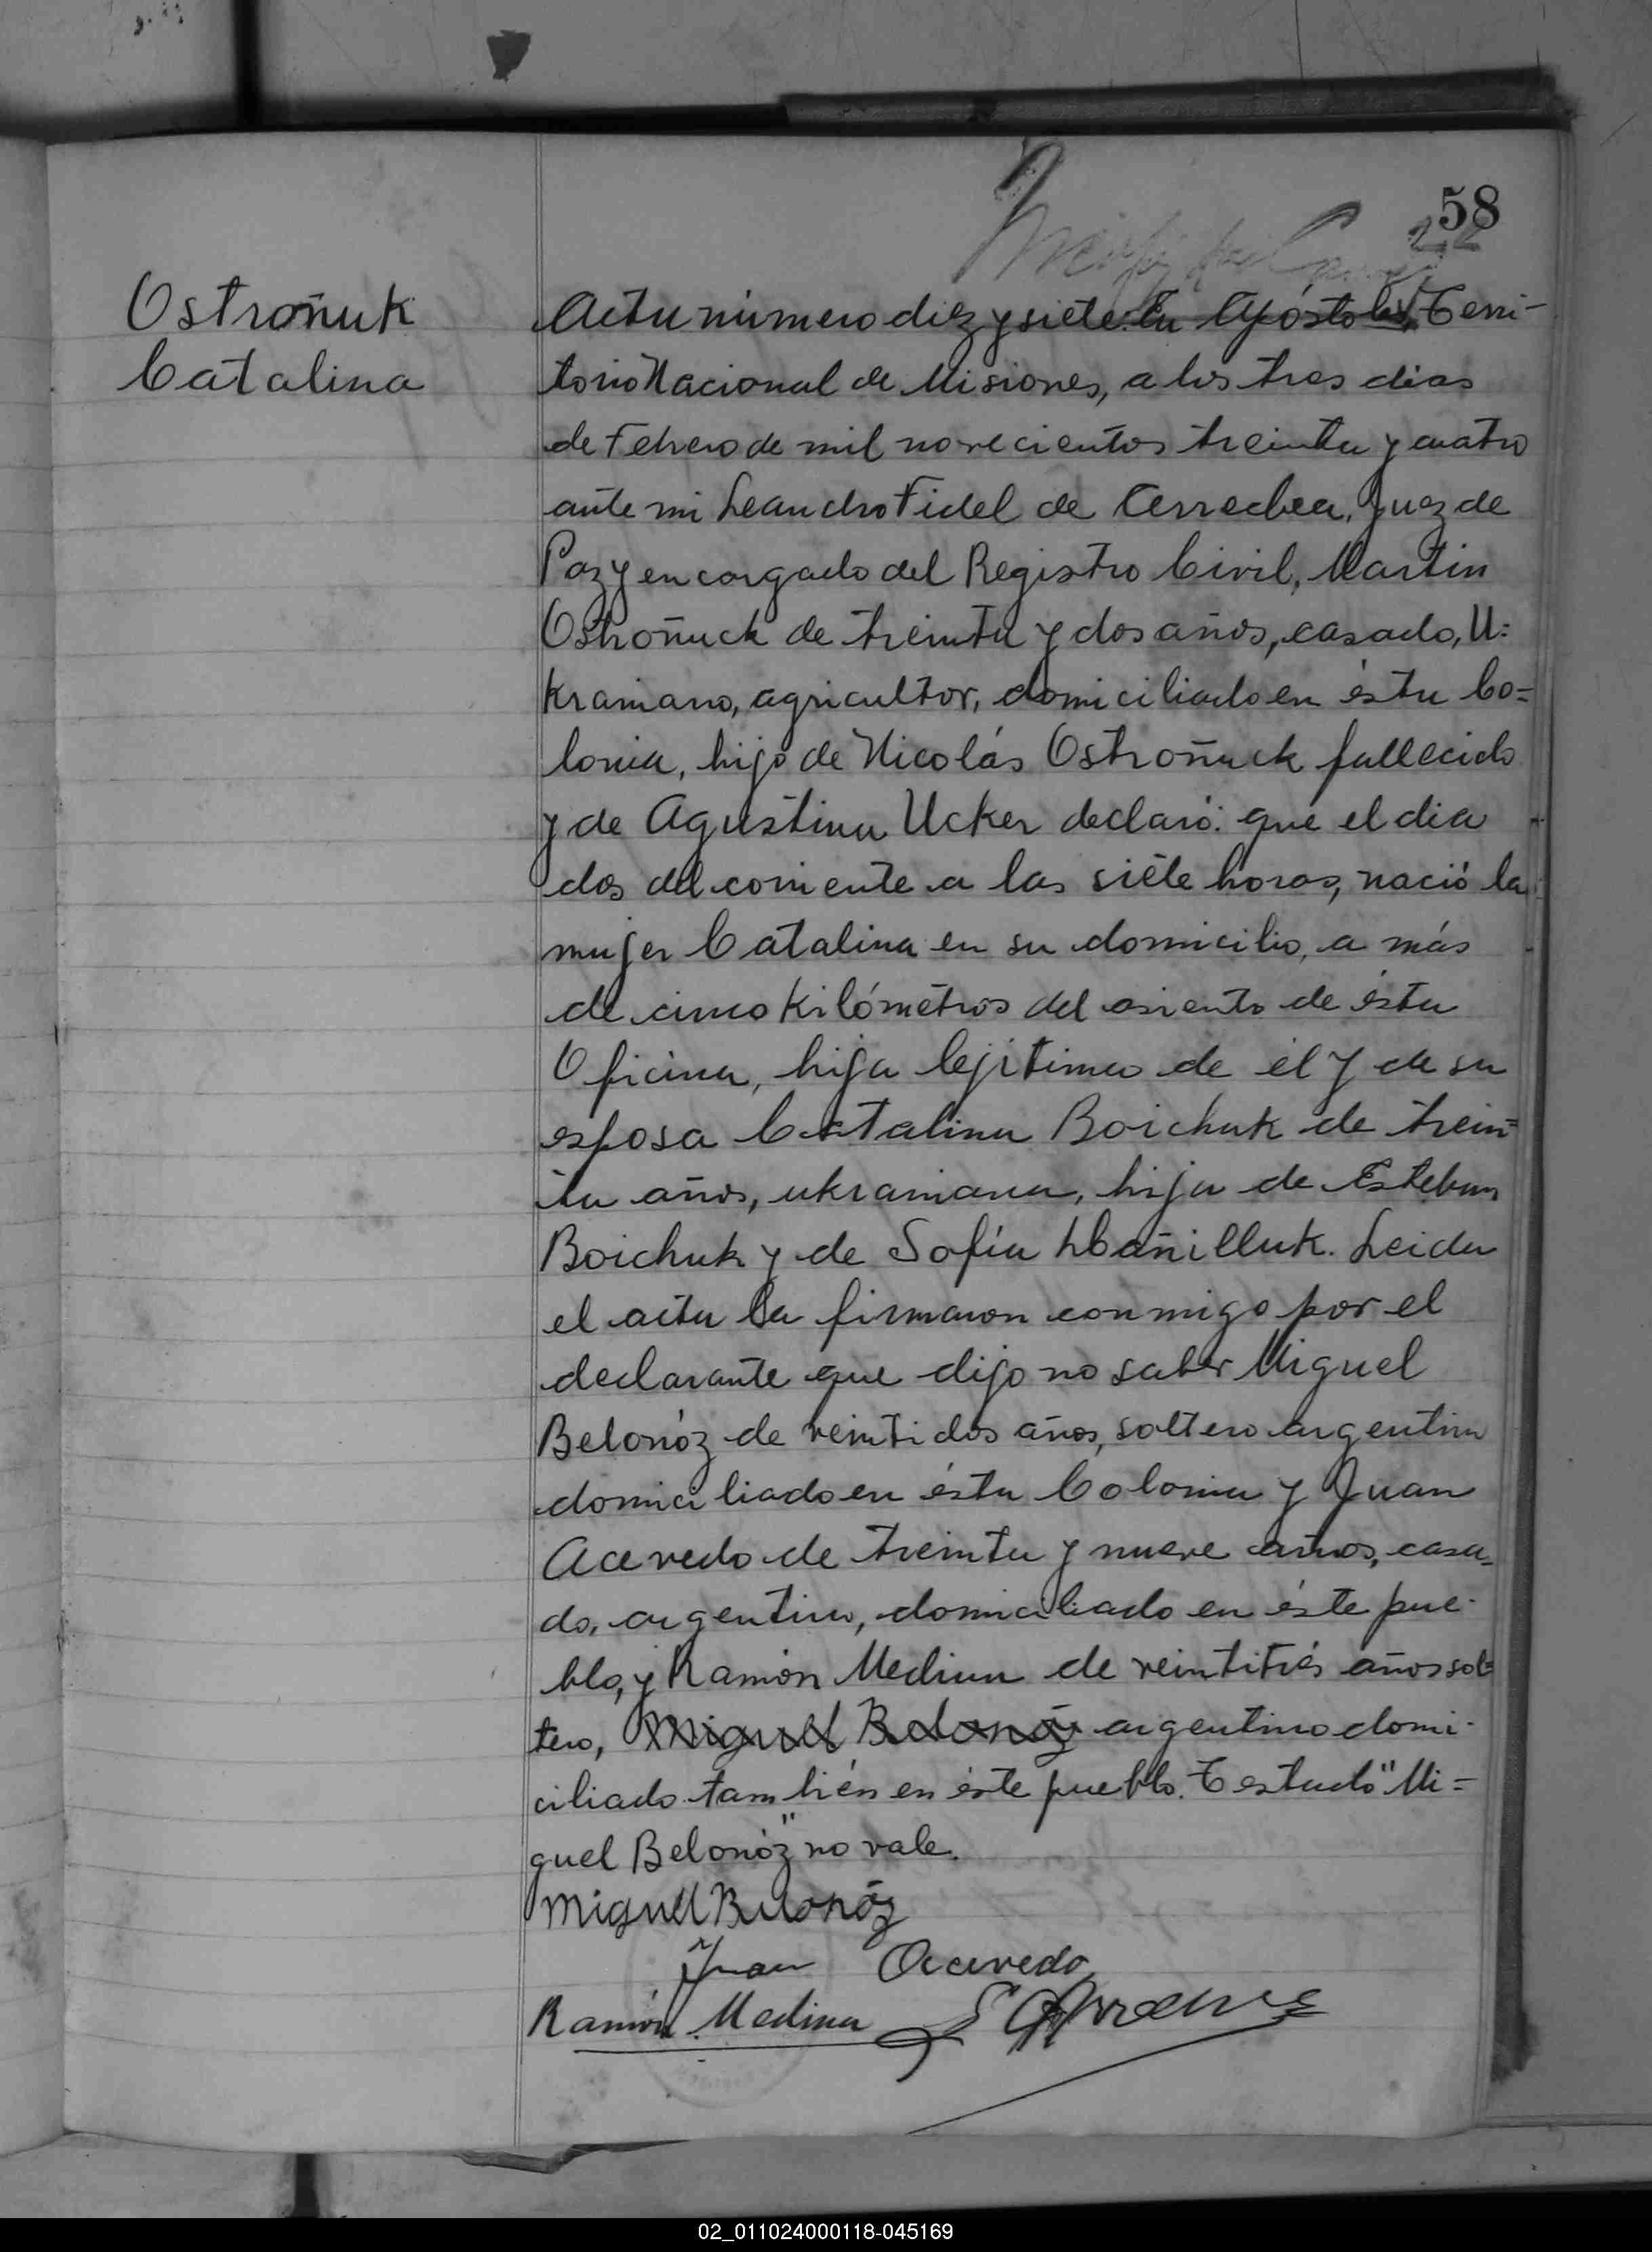 58
22
Ostroñuk
Catalina
Acta número diez y siete: En Apóstoles, Terri-
torio Nacional de Misiones, a los tres dias
de Febrero de mil novecientos treinta y cuatro
ante mi Leandro Fidel de Arrechea, Juez de
Paz y encargado del Registro Civil, Martin
Ostroñuck de treinta y dos años, casado, U=
kraniano, agricultor, domiciliado en ésta Co=
lonia, hijo de Nicolás Ostroñuck fallecido
y de Agustina Ucker declaró: que el dia
dos del corriente a las siete horas, nació la
mujer Catalina en su domicilio, a más
de cinco Kilómetros del asiento de ésta
Oficina, hija lejitima de él y de su
esposa Catalina Boichuk de trein=
ta años, ukraniana, hija de Esteban
Boichuk y de Sofía Hbañilluk. Leida
el acta la firmaron conmigo por el
declarante que dijo no saber Miguel
Belonóz de veintidos años, soltero argentino
domiciliado en ésta Colonia y Juan
Acevedo de treinta y nueve años, casa=
do, argentino, domiciliado en éste pue-
blo, y Ramón Medina de veintitrés años sol=
tero, Miguel Belonóz argentino domi-
ciliado también en éste pueblo. Testado "Mi=
guel Belonóz" no vale.
Miguel Belonóz
Juan Acevedo
Ramón Medina
02_011024000118-045169